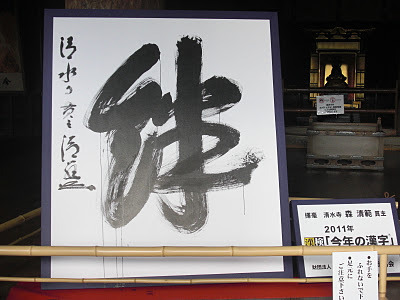 絆
清水
揮毫 清水寺 森 清範 貫主
2011年
漢検「今年の漢字」
財団法人
会
●お手を
ふれないで下
●足元に
ご注意下さい